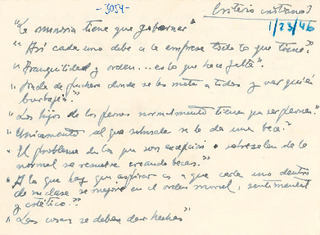 -3054-
Criterio
1/23/46
"La minoria tiene que gobernar"
"Así cada uno debe a la empresa todo lo que tiene."
"Tranquilidad y orden... es lo que hace falta".
de puchero donde se les meta a todos y ver quién
"Los hijos de los peones normalmente tienen que ser peones."
"Unicamente al que sobresale se le da una beca".
"El problema de los que son excepción o sobresalen de lo
normal se resuelve creando becas."
"A lo que hay que aspirar es a que cada uno dentro
de su clase se mejore en el orden moral, sentimental
y estético."
"Las cosas se deben dar hechas"